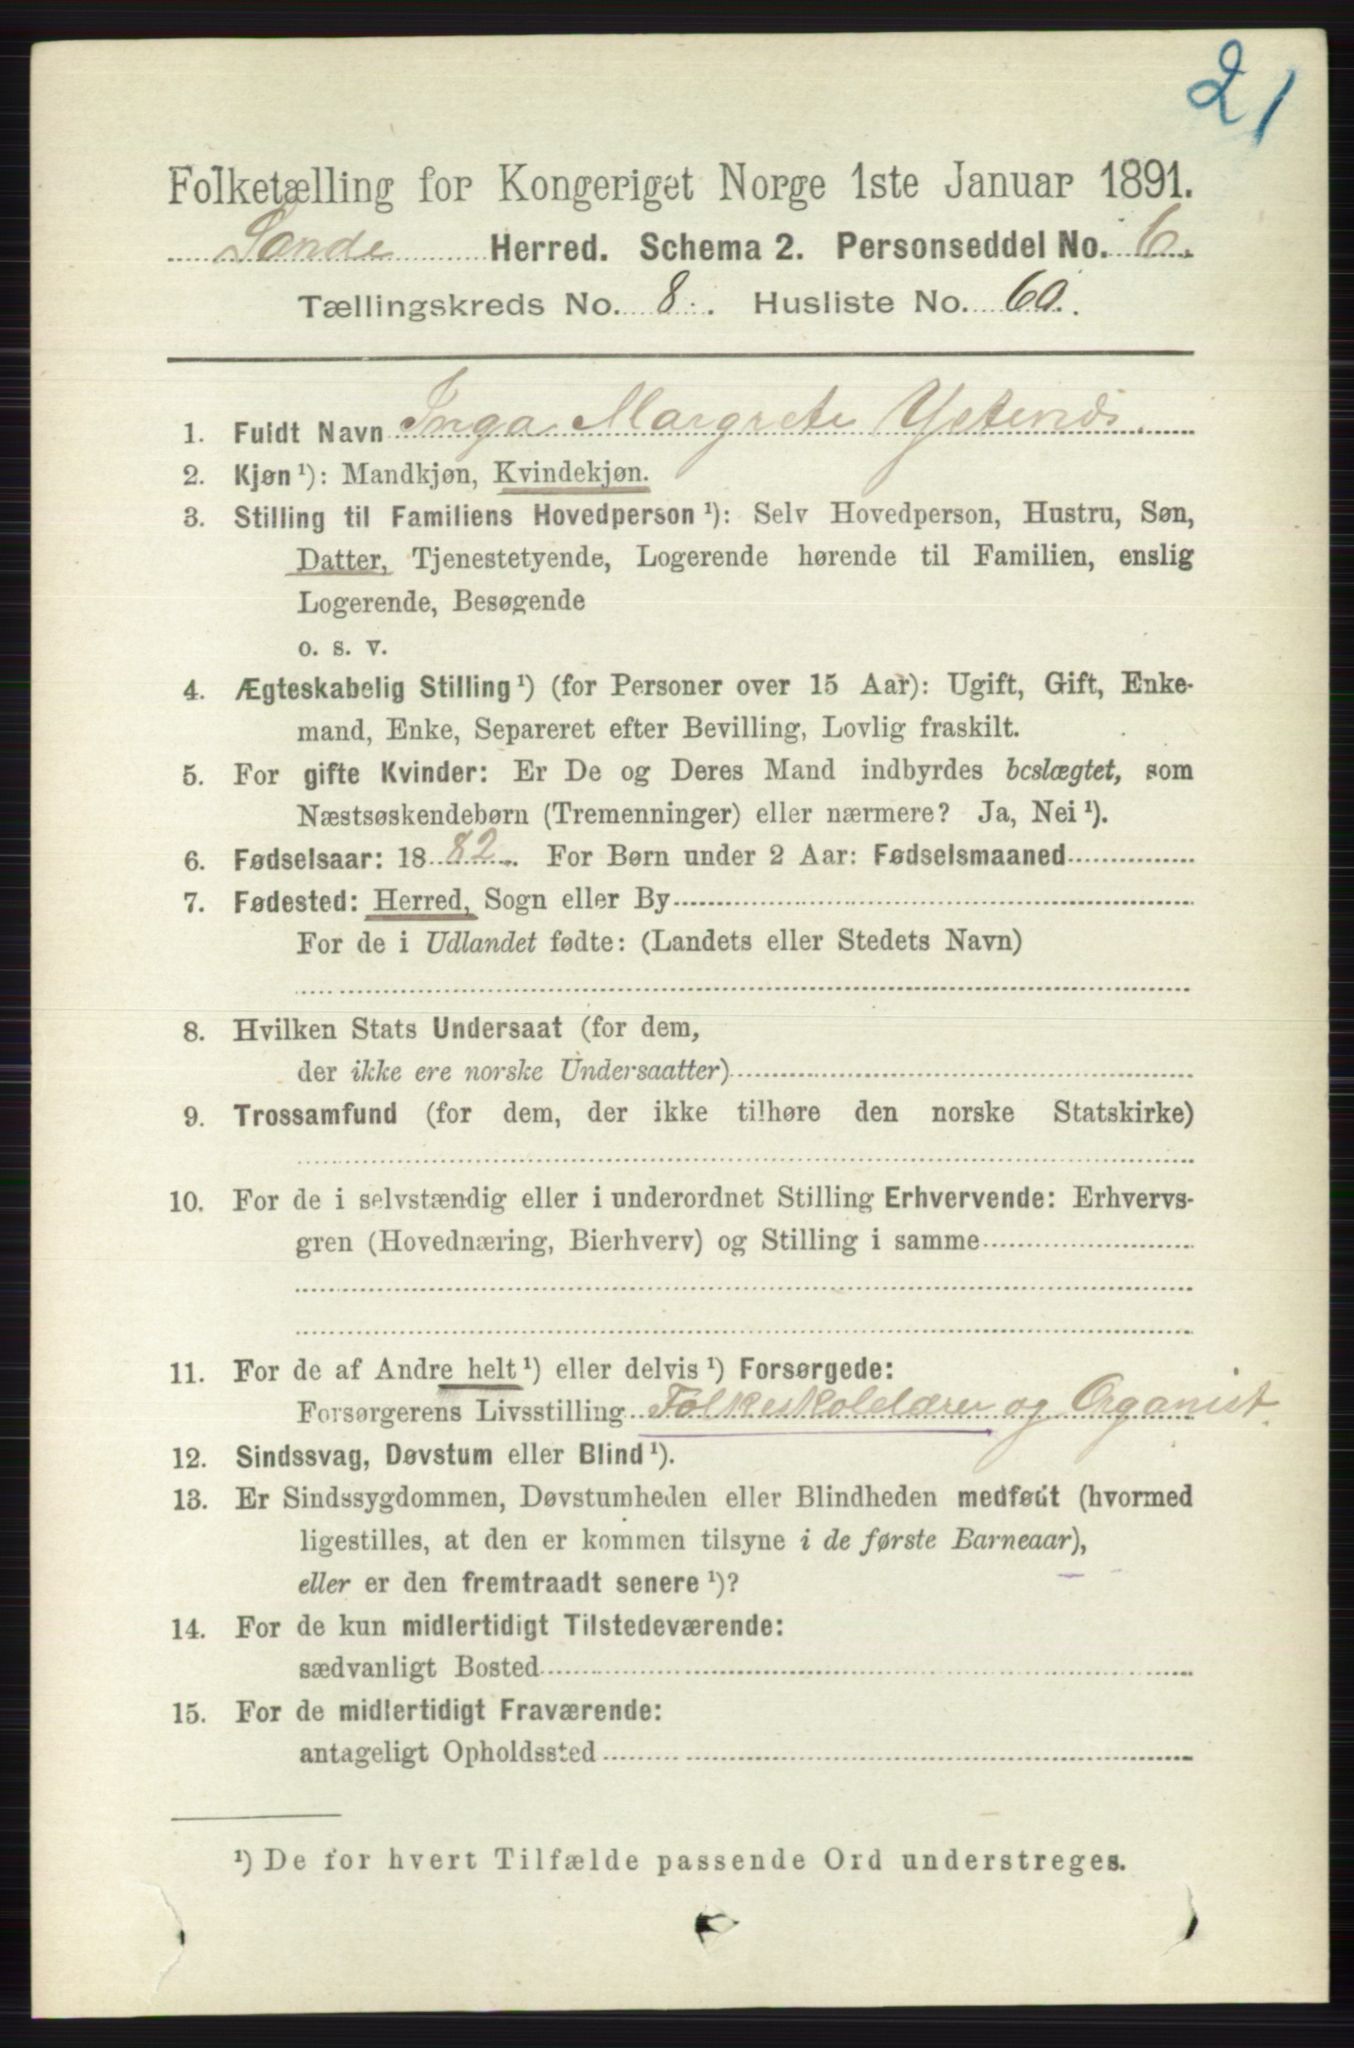 21
Folketælling for Kongeriget Norge 1ste Januar 1891.
Sande Herred. Schema 2. Personseddel No. 6.
Tællingskreds No. 8. Husliste No. 60.
1. Fuldt Navn Inga Margrete
2. Kjøn¹): Mandkjøn, Kvindekjøn.
3. Stilling til Familiens Hovedperson¹): Selv Hovedperson, Hustru, Søn,
Datter, Tjenestetyende, Logerende hørende til Familien, enslig
Logerende, Besøgende
o. s. v.
4. Ægteskabelig Stilling¹) (for Personer over 15 Aar): Ugift, Gift, Enke-
mand, Enke, Separeret efter Bevilling, Lovlig fraskilt.
5. For gifte Kvinder: Er De og Deres Mand indbyrdes beslægtet, som
Næstsøskendebørn (Tremenninger) eller nærmere? Ja, Nei¹).
6. Fødselsaar: 1882. For Børn under 2 Aar: Fødselsmaaned
7. Fødested: Herred, Sogn eller By
For de i Udlandet fødte: (Landets eller Stedets Navn)
8. Hvilken Stats Undersaat (for dem,
der ikke ere norske Undersaatter)
9. Trossamfund (for dem, der ikke tilhøre den norske Statskirke)
10. For de i selvstændig eller i underordnet Stilling Erhvervende: Erhvervs-
gren (Hovednæring, Bierhverv) og Stilling i samme
11. For de af Andre helt¹) eller delvis¹) Forsørgede:
Forsørgerens Livsstilling Folkeskolelærer og Organist.
12. Sindssvag, Døvstum eller Blind¹).
13. Er Sindssygdommen, Døvstumheden eller Blindheden medfødt (hvormed
ligestilles, at den er kommen tilsyne i de første Barneaar),
eller er den fremtraadt senere¹)?
14. For de kun midlertidigt Tilstedeværende:
sædvanligt Bosted
15. For de midlertidigt Fraværende:
antageligt Opholdssted
¹) De for hvert Tilfælde passende Ord understreges.